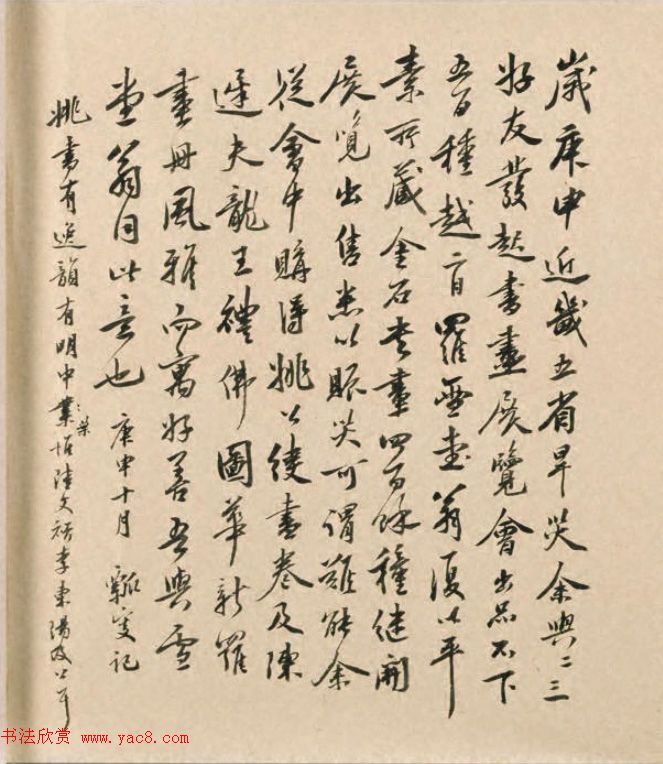 歲庚申近畿五省旱災余與二三
好友發起書畫展覽會出品不下
五百種越一月羅雪堂翁復以平
素所藏金石書畫四百餘種繼開
展覽出售悉以賑災可謂難能余
從會中購得姚公綬書卷及陳
遲夫龍王禮佛圖華新羅
畫冊風雅而寓好善吾與雪
堂翁同此意也 庚申十月 瓢叟記
姚書有逸韻有明中葉
書法欣赏 www.yac8.com